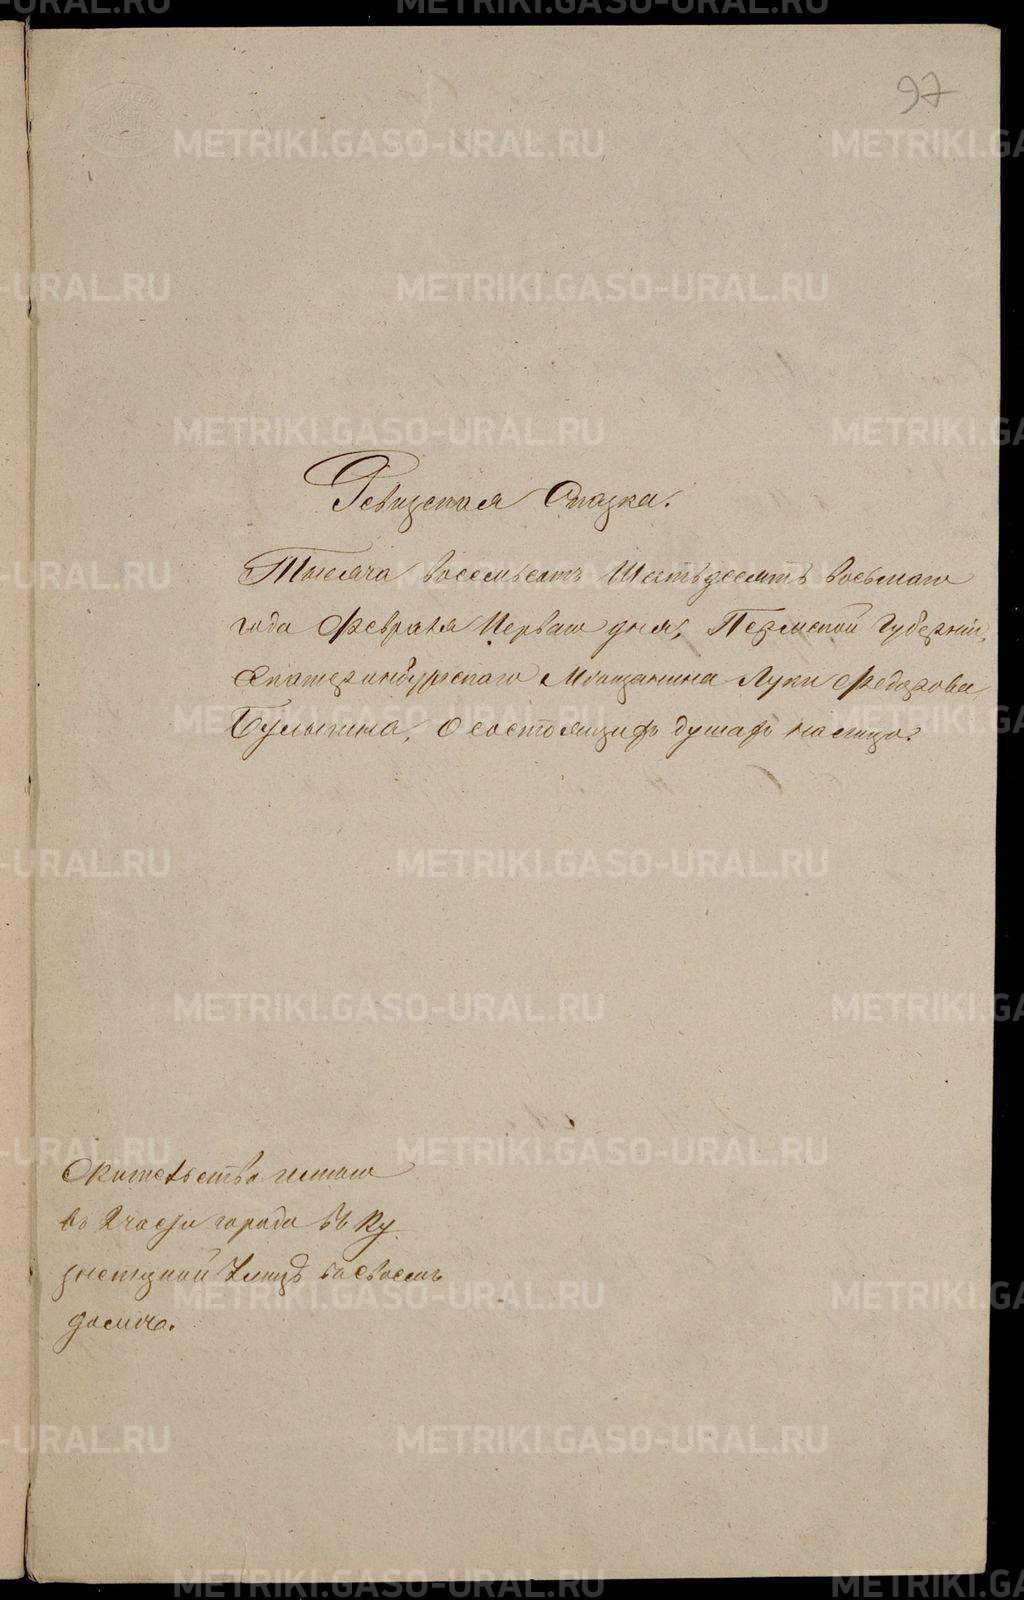 97
Ревизская Сказка.
Тысяча восемьсотъ Шестьдесятъ восьмаго
года Февраля Перваго дня, Пермской Губерніи,
Екатеринбургскаго Мѣщанина Луки Федорова
Булыгина, о состоящихъ душахъ налицо.
Жительство имѣю
въ 2 части города въ Ку
знецкой Улицѣ во своемъ
домѣ.
METRIKI.GASO-URAL.RU